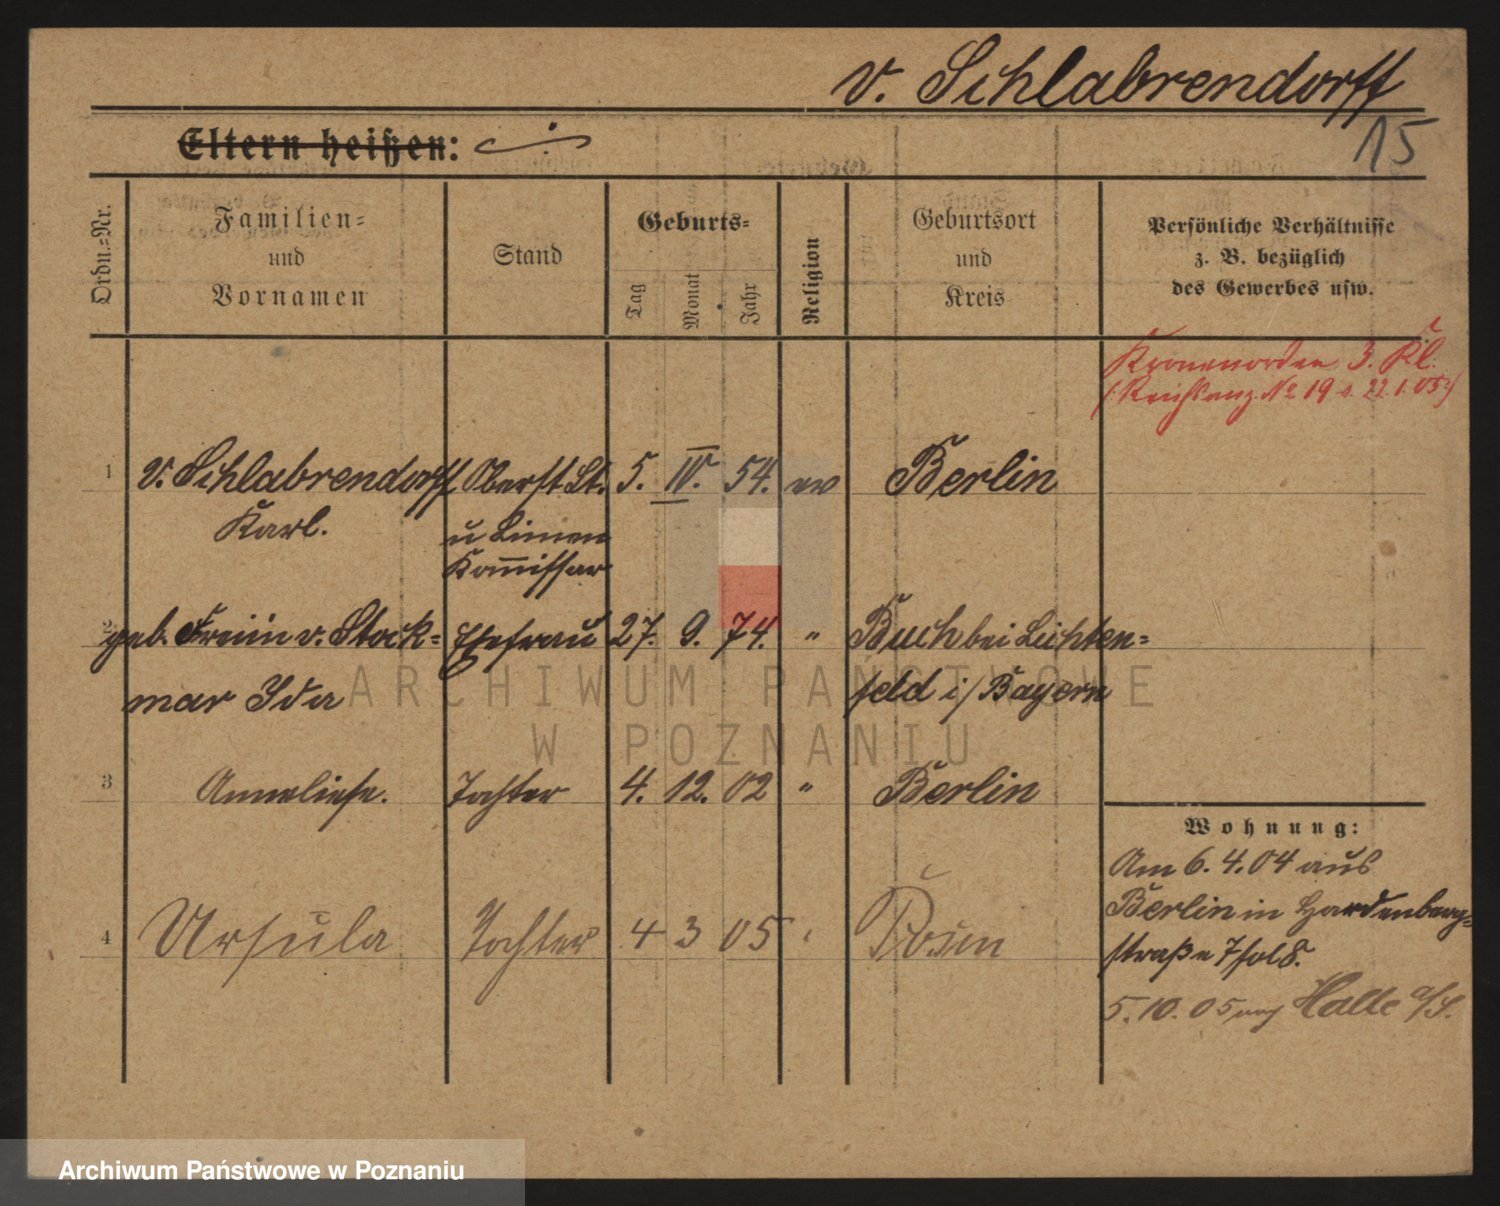 v. Schlabrendorff
15
Eltern heißen:
Ordn.-Nr.
Familien-
und
Vornamen
Stand
Geburts-
Tag
Monat
Jahr
Religion
Geburtsort
und
Kreis
Persönliche Verhältnisse
z. B. bezüglich
des Gewerbes usw.
Kronenorden 3. Kl.
(Reichsanz. No 19 v. 22.1.05)
1 v. Schlabrendorff Oberst Lt. 5. IV. 54. ev Berlin
Karl. u Linien
Kom̅issar
2 geb. Freiin v. Stock= Ehefrau 27. 9. 74. " Buch bei Lichten=
mar Ida feld i/Bayern
3 Anneliese. Tochter 4. 12. 02 " Berlin
Wohnung:
Am 6.4.04 aus
Berlin in Hardenberg=
straße 7
4 Ursula Tochter 4 3 05 Posen
5.10.05 nach Halle a/S.
ARCHIWUM PAŃSTWOWE
W POZNANIU
Archiwum Państwowe w Poznaniu